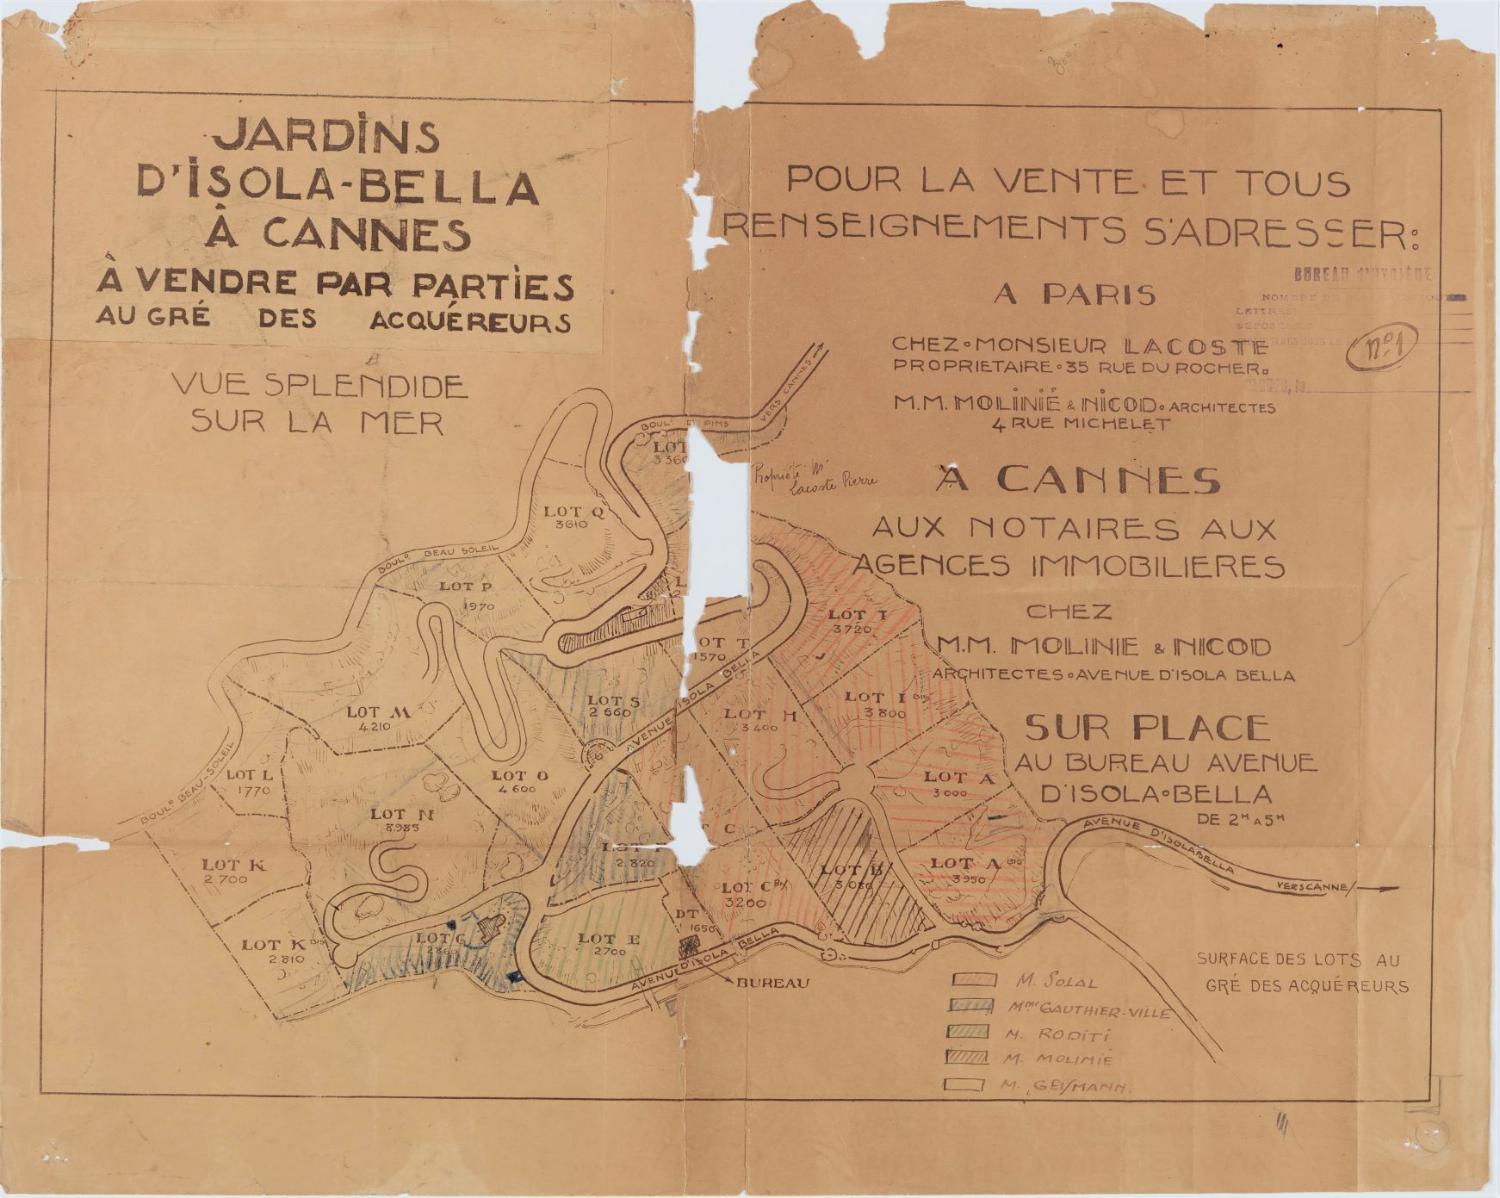 JARDINS
D'ISOLA-BELLA
À CANNES
À VENDRE PAR PARTIES
AU GRÉ DES ACQUÉREURS
VUE SPLENDIDE
SUR LA MER
POUR LA VENTE ET TOUS
RENSEIGNEMENTS S'ADRESSER:
A PARIS
CHEZ MONSIEUR LACOSTE
PROPRIETAIRE 35 RUE DU ROCHER.
M.M. MOLINIÉ & NICOD ARCHITECTES
4 RUE MICHELET
À CANNES
AUX NOTAIRES AUX
AGENCES IMMOBILIERES
CHEZ
M.M. MOLINIE & NICOD
ARCHITECTES AVENUE D'ISOLA BELLA
SUR PLACE
AU BUREAU AVENUE
D'ISOLA BELLA
DE 2H A 5H
BUREAU D'HYGIÈNE
Nº1
VERS CANNES
BOULD PINS
LOT
3360
Propriété Mr
Lacoste Pierre
LOT Q
3610
BOULD BEAU SOLEIL
LOT P
1970
LOT I
3720
OT T
1570
LOT I BIS
3800
LOT S
2660
AVENUE ISOLA BELLA
LOT H
3400
LOT M
4210
LOT L
1770
LOT O
4600
LOT A
3000
BOULD BEAU-SOLEIL
LOT N
8985
C
LOT
2820
LOT K
2700
LOT B
3080
LOT A BIS
3950
AVENUE D'ISOLA BELLA
VERS CANNE/
LOT C BIS
3200
DT
1650
LOT K BIS
2810
LOT G
LOT E
2700
AVENUE D'ISOLA BELLA
BUREAU
SURFACE DES LOTS AU
GRÉ DES ACQUÉREURS
M. SOLAL
MME GAUTHIER-VILLE
M. RODITI
M. MOLINIE
M. GEI/MANN.